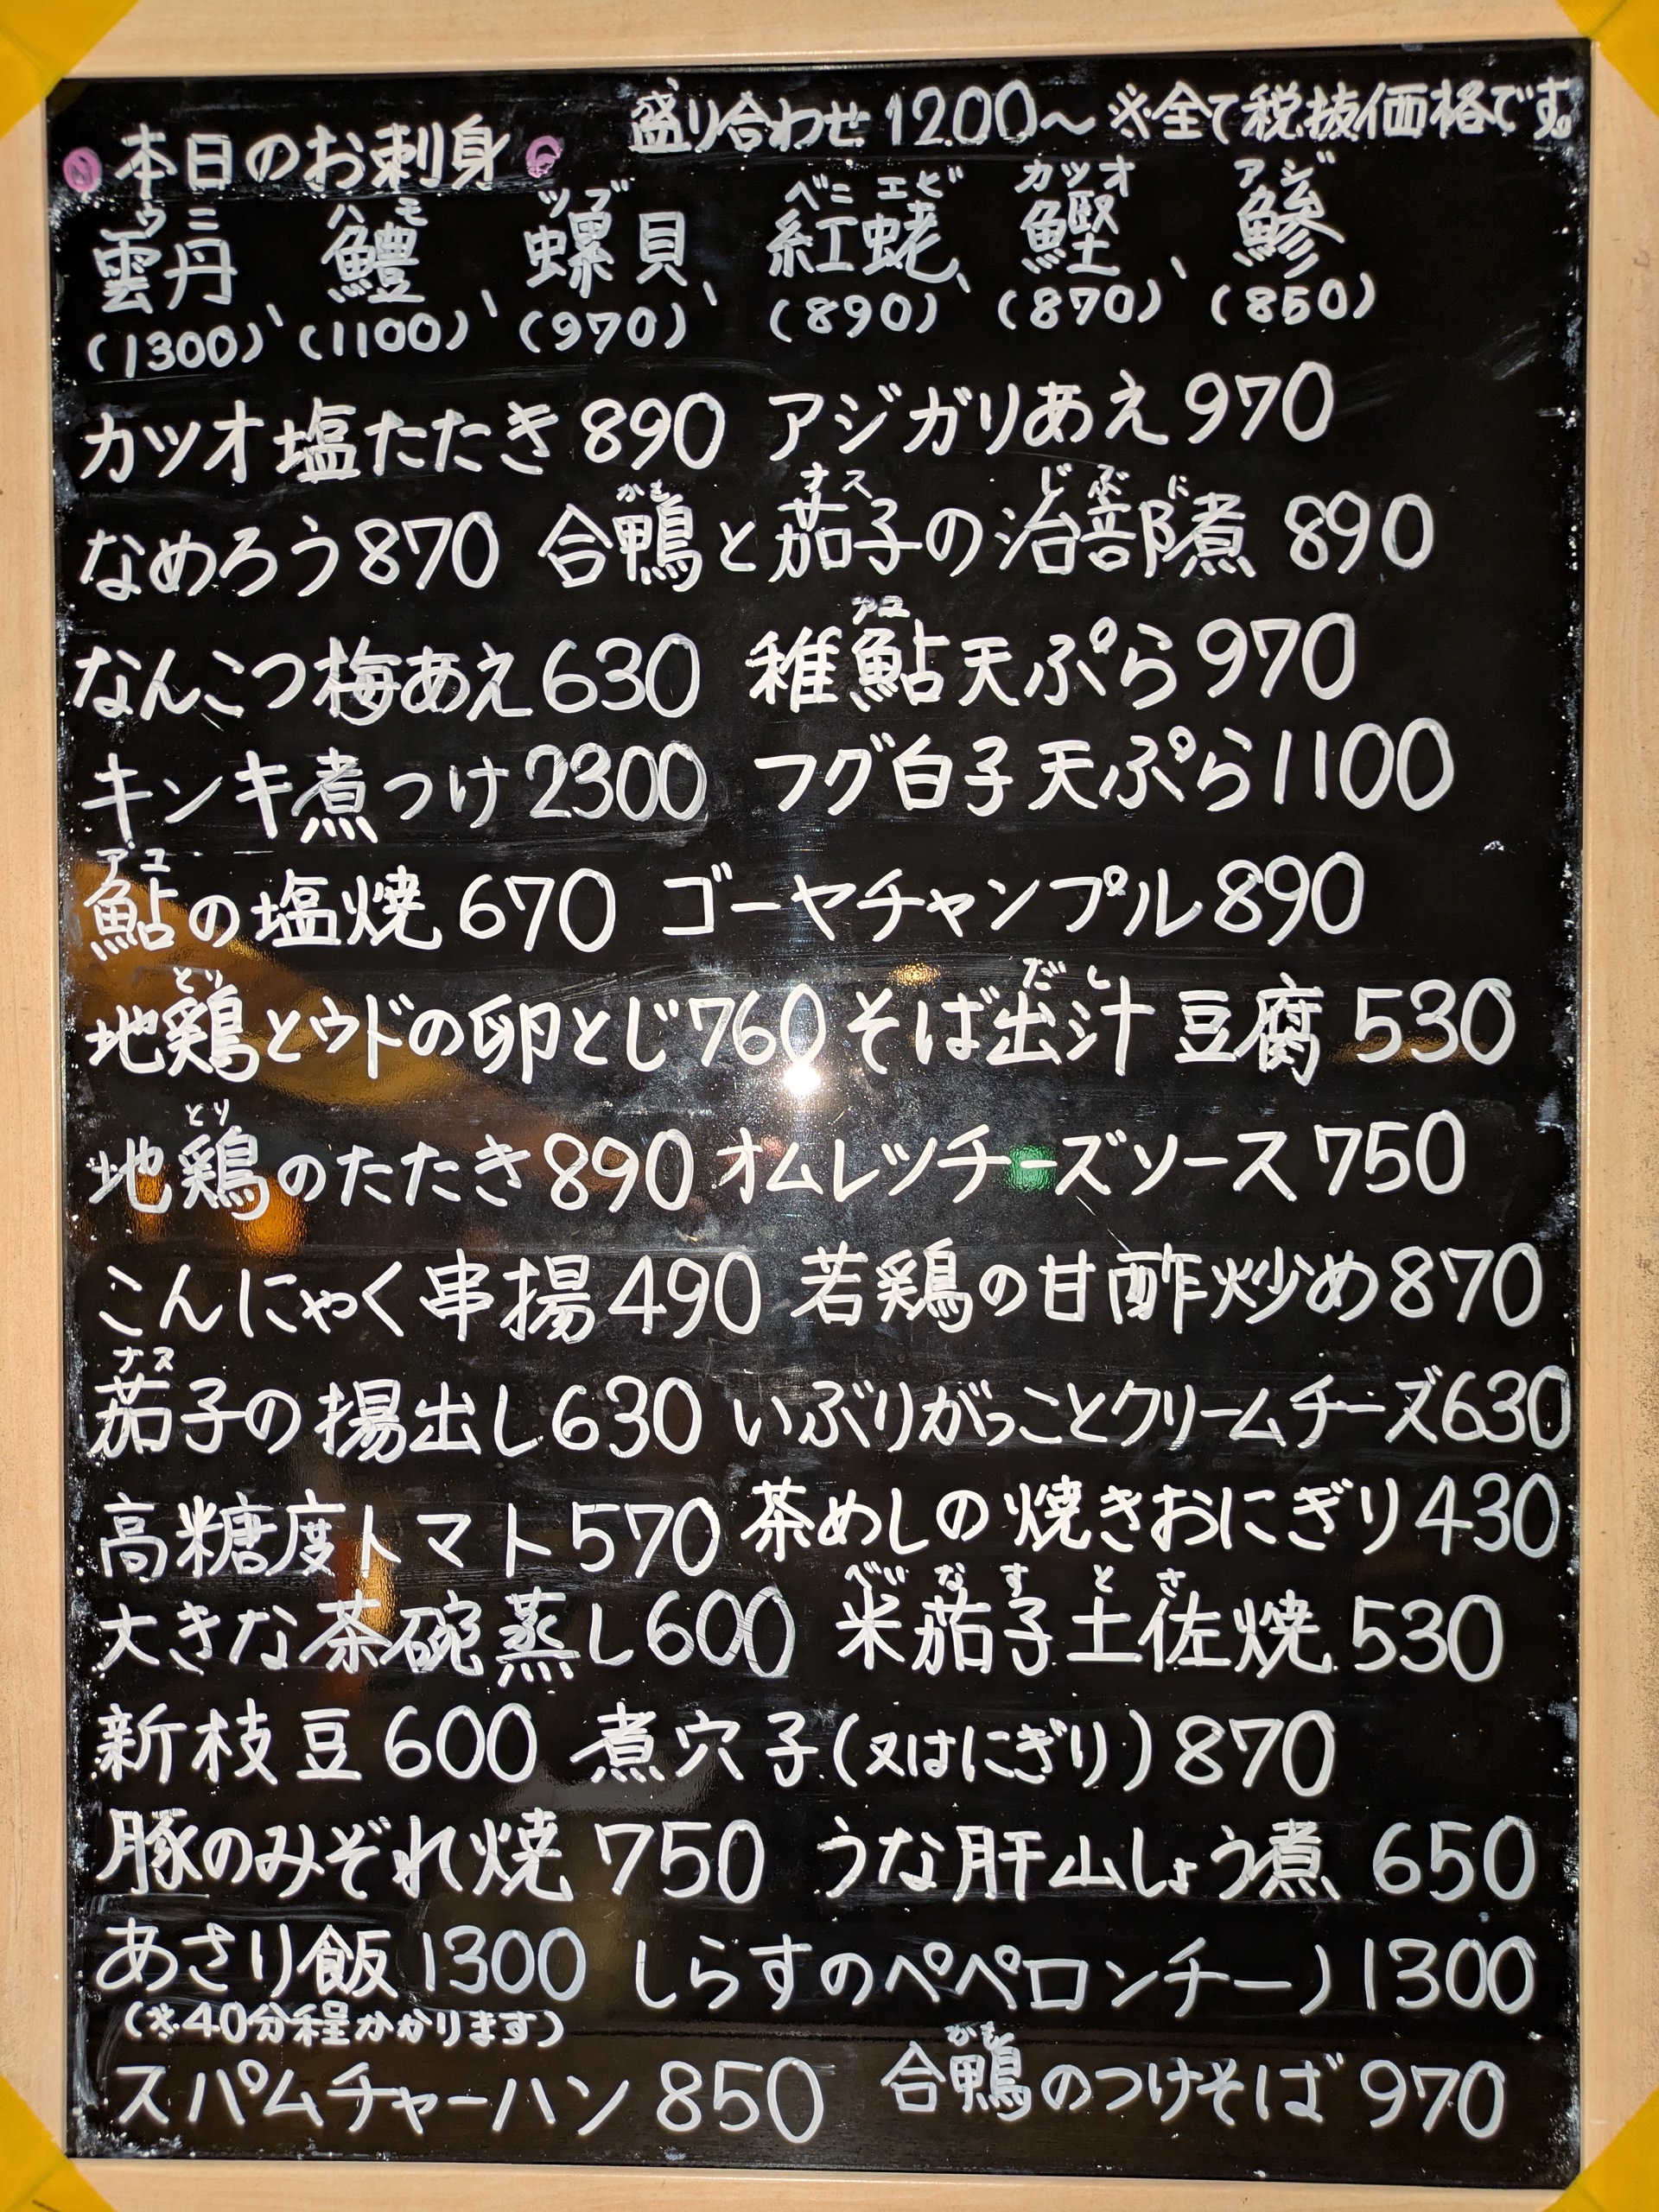 盛り合わせ 1200〜 ※全て税抜価格です。
本日のお刺身
ウニ ハモ ツブ ベニエビ カツオ アジ
雲丹、鱧、螺貝、紅蛯、鰹、鯵
(1300) (1100) (970) (890) (870) (850)
カツオ塩たたき890 アジガリあえ970
かも ナス じぶに
なめろう870 合鴨と茄子の治部煮 890
アユ
なんこつ梅あえ630 稚鮎天ぷら970
キンキ煮つけ2300 フグ白子天ぷら1100
アユ
鮎の塩焼 670 ゴーヤチャンプル890
とり だし
地鶏とウドの卵とじ760 そば出汁豆腐 530
とり
地鶏のたたき890 オムレツチーズソース750
こんにゃく串揚490 若鶏の甘酢炒め870
ナス
茄子の揚出し630 いぶりがっことクリームチーズ630
高糖度トマト570 茶めしの焼きおにぎり430
べいなす とさ
大きな茶碗蒸し600 米茄子土佐焼 530
新枝豆600 煮穴子(又はにぎり)870
豚のみぞれ焼 750 うな肝山しょう煮 650
あさり飯 1300 しらすのペペロンチーノ1300
(※40分程かかります)
かも
スパムチャーハン 850 合鴨のつけそば 970